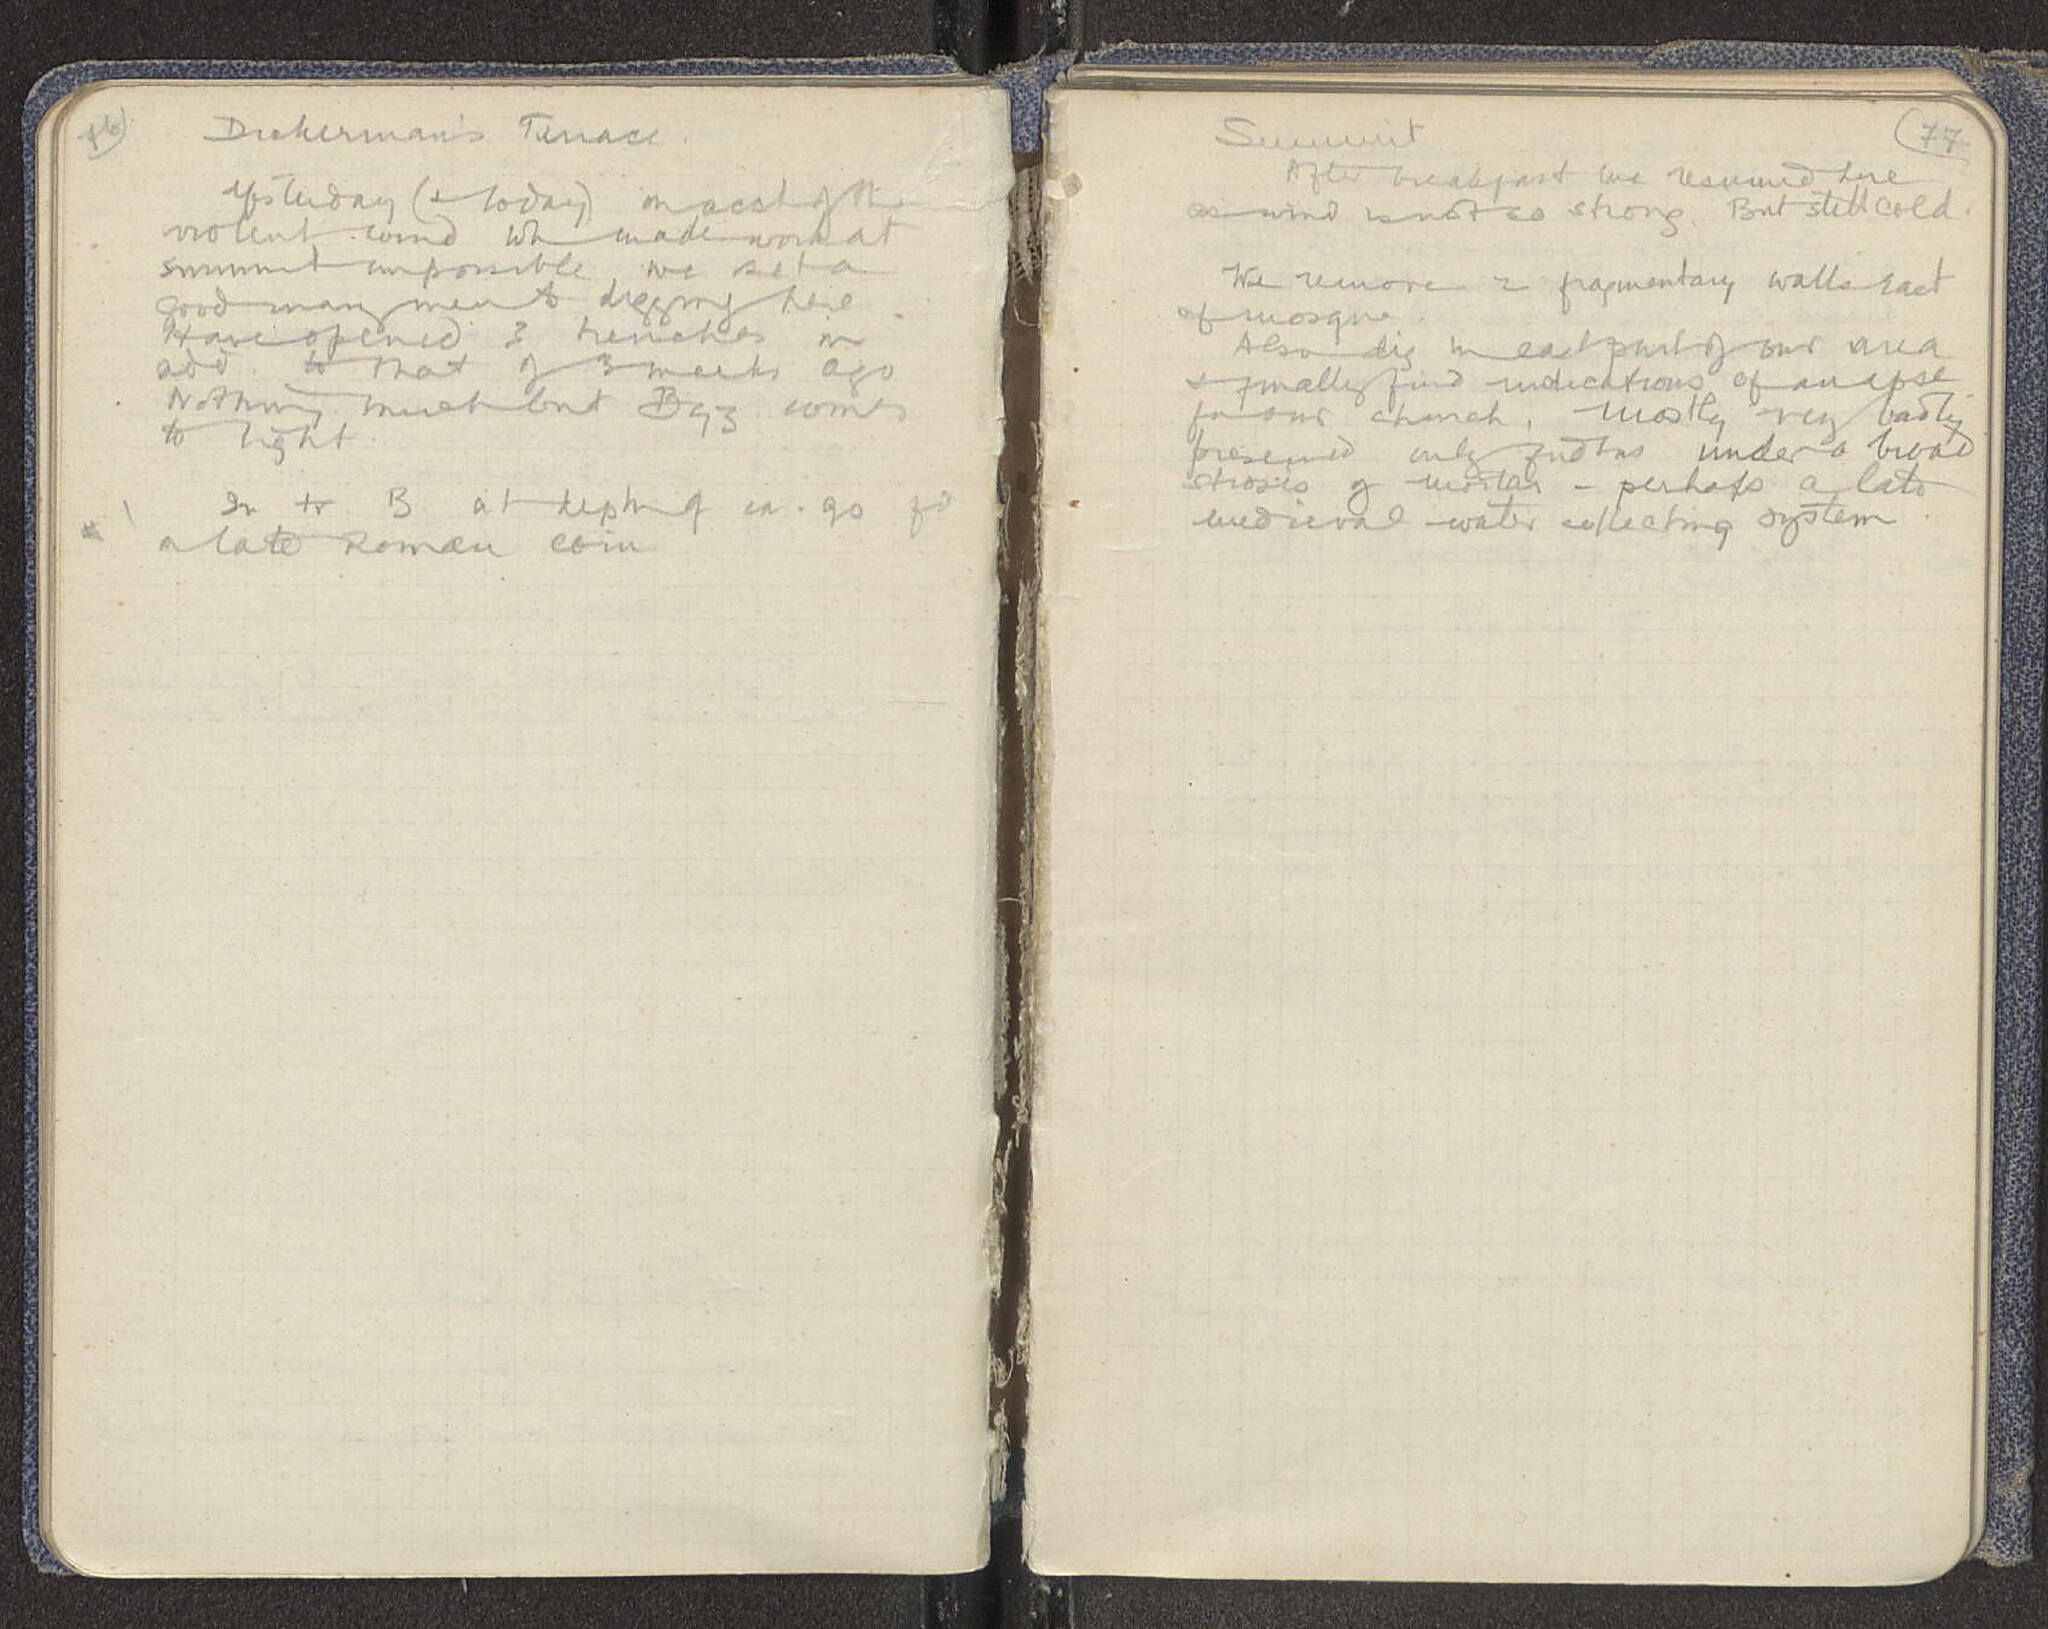 76
Dickerman's Terrace.
Yesterday (& today) on acct of the
violent wind wh made work at
summit impossible we set a
good many men to digging here.
Have opened 3 trenches in
add. to that of 3 weeks ago
Nothing much but Byz comes
to light.
In tr B at depth of ca. 90
a late Roman coin
77
Summit
After breakfast we resumed here
as wind is not so strong. But still cold.
We remove 2 fragmentary walls East
of mosque.
Also dig in east part of our area
& finally find indications of an apse
for our church, mostly very badly
preserved only under a broad
of mortar - perhaps a late
medieval water collecting system.